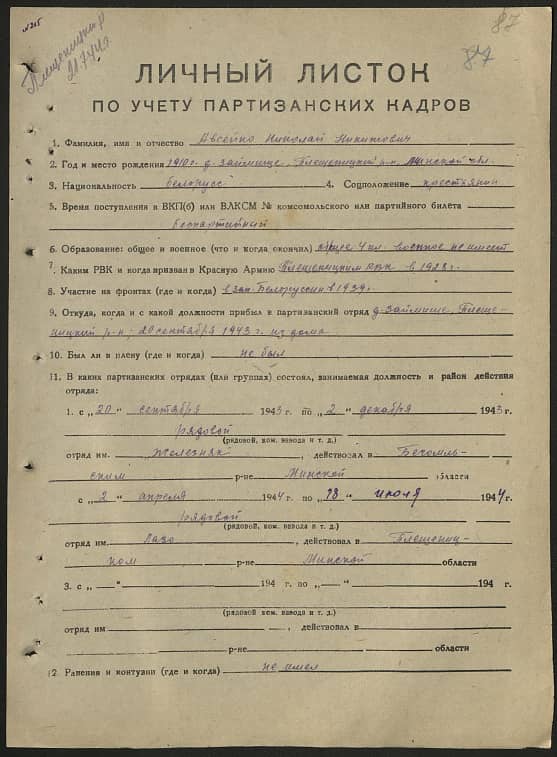 № 205
87
Плещениц. р
20.7.44 г.
87
ЛИЧНЫЙ ЛИСТОК
ПО УЧЕТУ ПАРТИЗАНСКИХ КАДРОВ
1. Фамилия, имя и отчество Авсейко Николай Никитович
2. Год и место рождения 1910 г. д. Займище, Плещеницкий р-н, Минской обл.
3. Национальность белорусс 4. Соцположение крестьянин
5. Время поступления в ВКП(б) или ВЛКСМ № комсомольского или партийного билета
беспартийный
6. Образование: общее и военное (что и когда окончил) общее 4 кл. военное не имеет
7. Каким РВК и когда призван в Красную Армию Плещеницким РВК в 1928 г.
8. Участие на фронтах (где и когда) в Зап. Белоруссии в 1939 г.
9. Откуда, когда и с какой должности прибыл в партизанский отряд д. Займище, Плеще-
ницкий р-н, 20 сентября 1943 г. из дома
10. Был ли в плену (где и когда) не был
11. В каких партизанских отрядах (или группах) состоял, занимаемая должность и район действия
отряда:
1. с „20” сентября 1943 г. по „2” декабря 1943 г.
рядовой
(рядовой, ком. взвода и т. д.)
отряд им. Железняк, действовал в Бегомль-
ском р-не Минской области
с „2” апреля 1944 г. по „18” июля 1944 г.
рядовой
(рядовой, ком. взвода и т. д.)
отряд им. Лазо, действовал в Плещениц-
ком р-не Минской области
3. с „—” 194 г. по „—” 194 г.
(рядовой, ком. взвода и т. д.)
отряд им , действовал в
р-не области
12. Ранения и контузии (где и когда) не имел